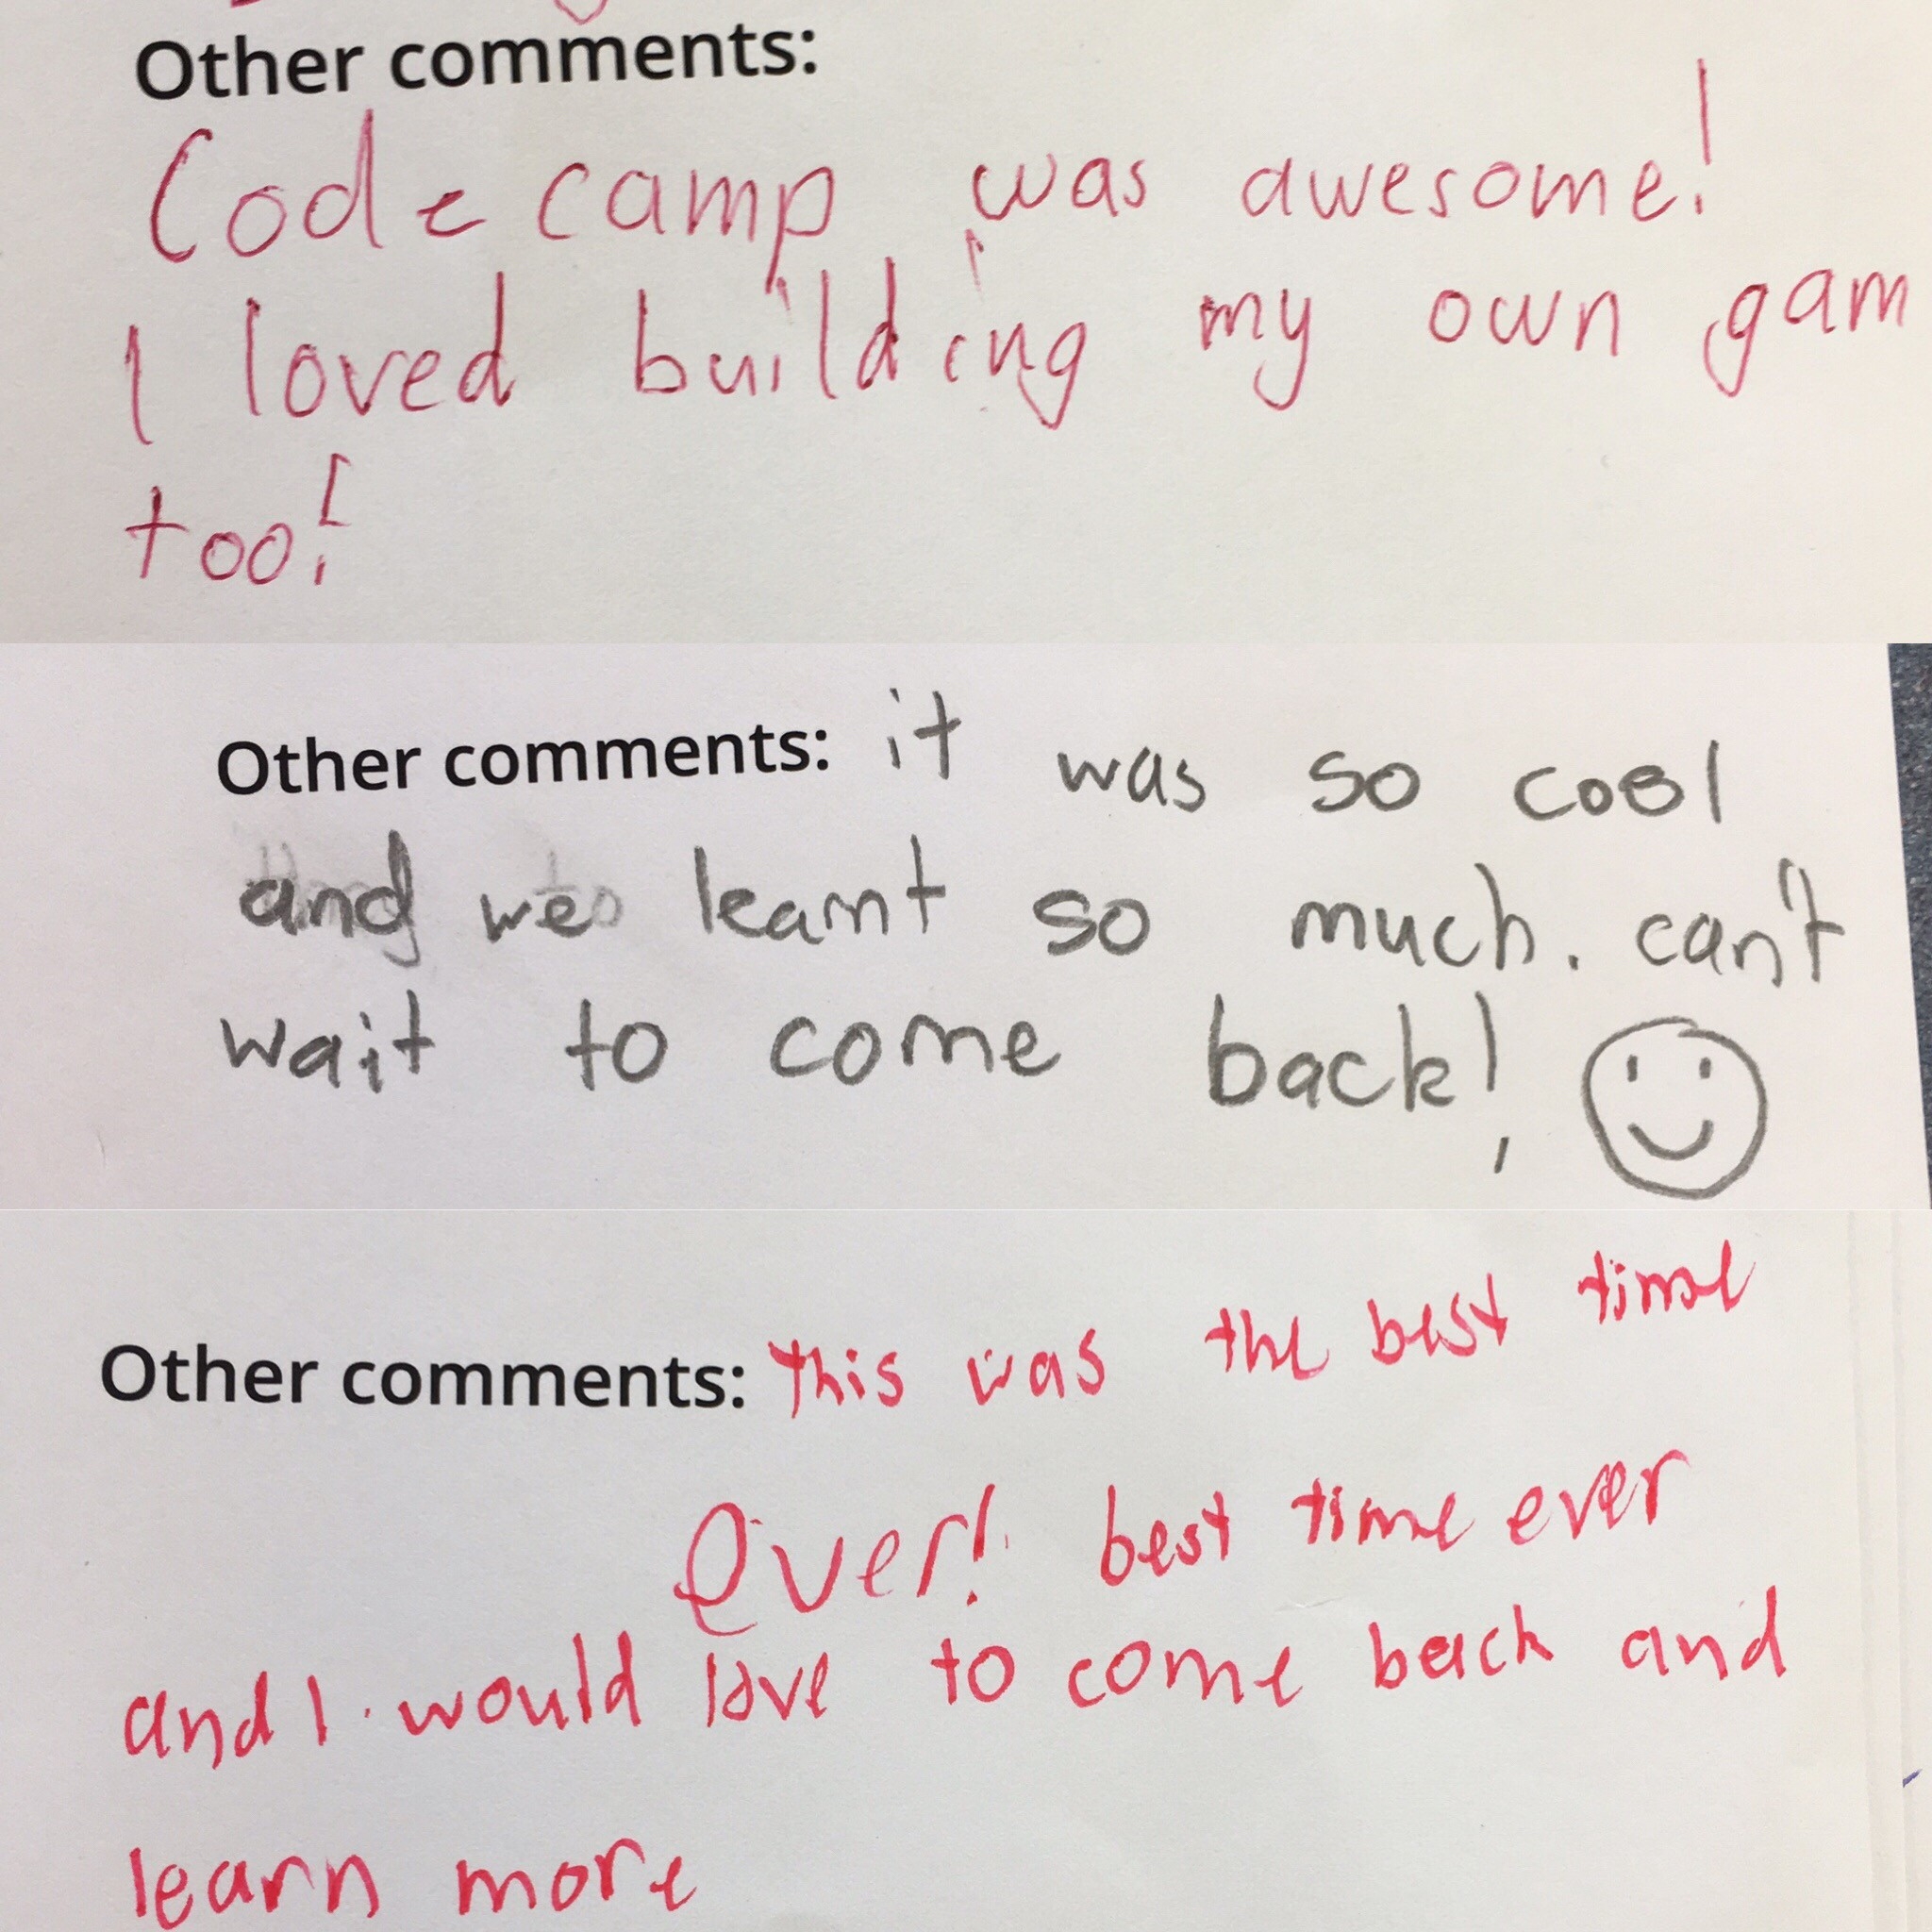 Other comments:
Code camp was awesome!
I loved building my own gam
too!
Other comments: it was so cool
and we learnt so much. can't
wait to come back!
Other comments: this was the best time
Ever! best time ever
and I would love to come back and
learn more